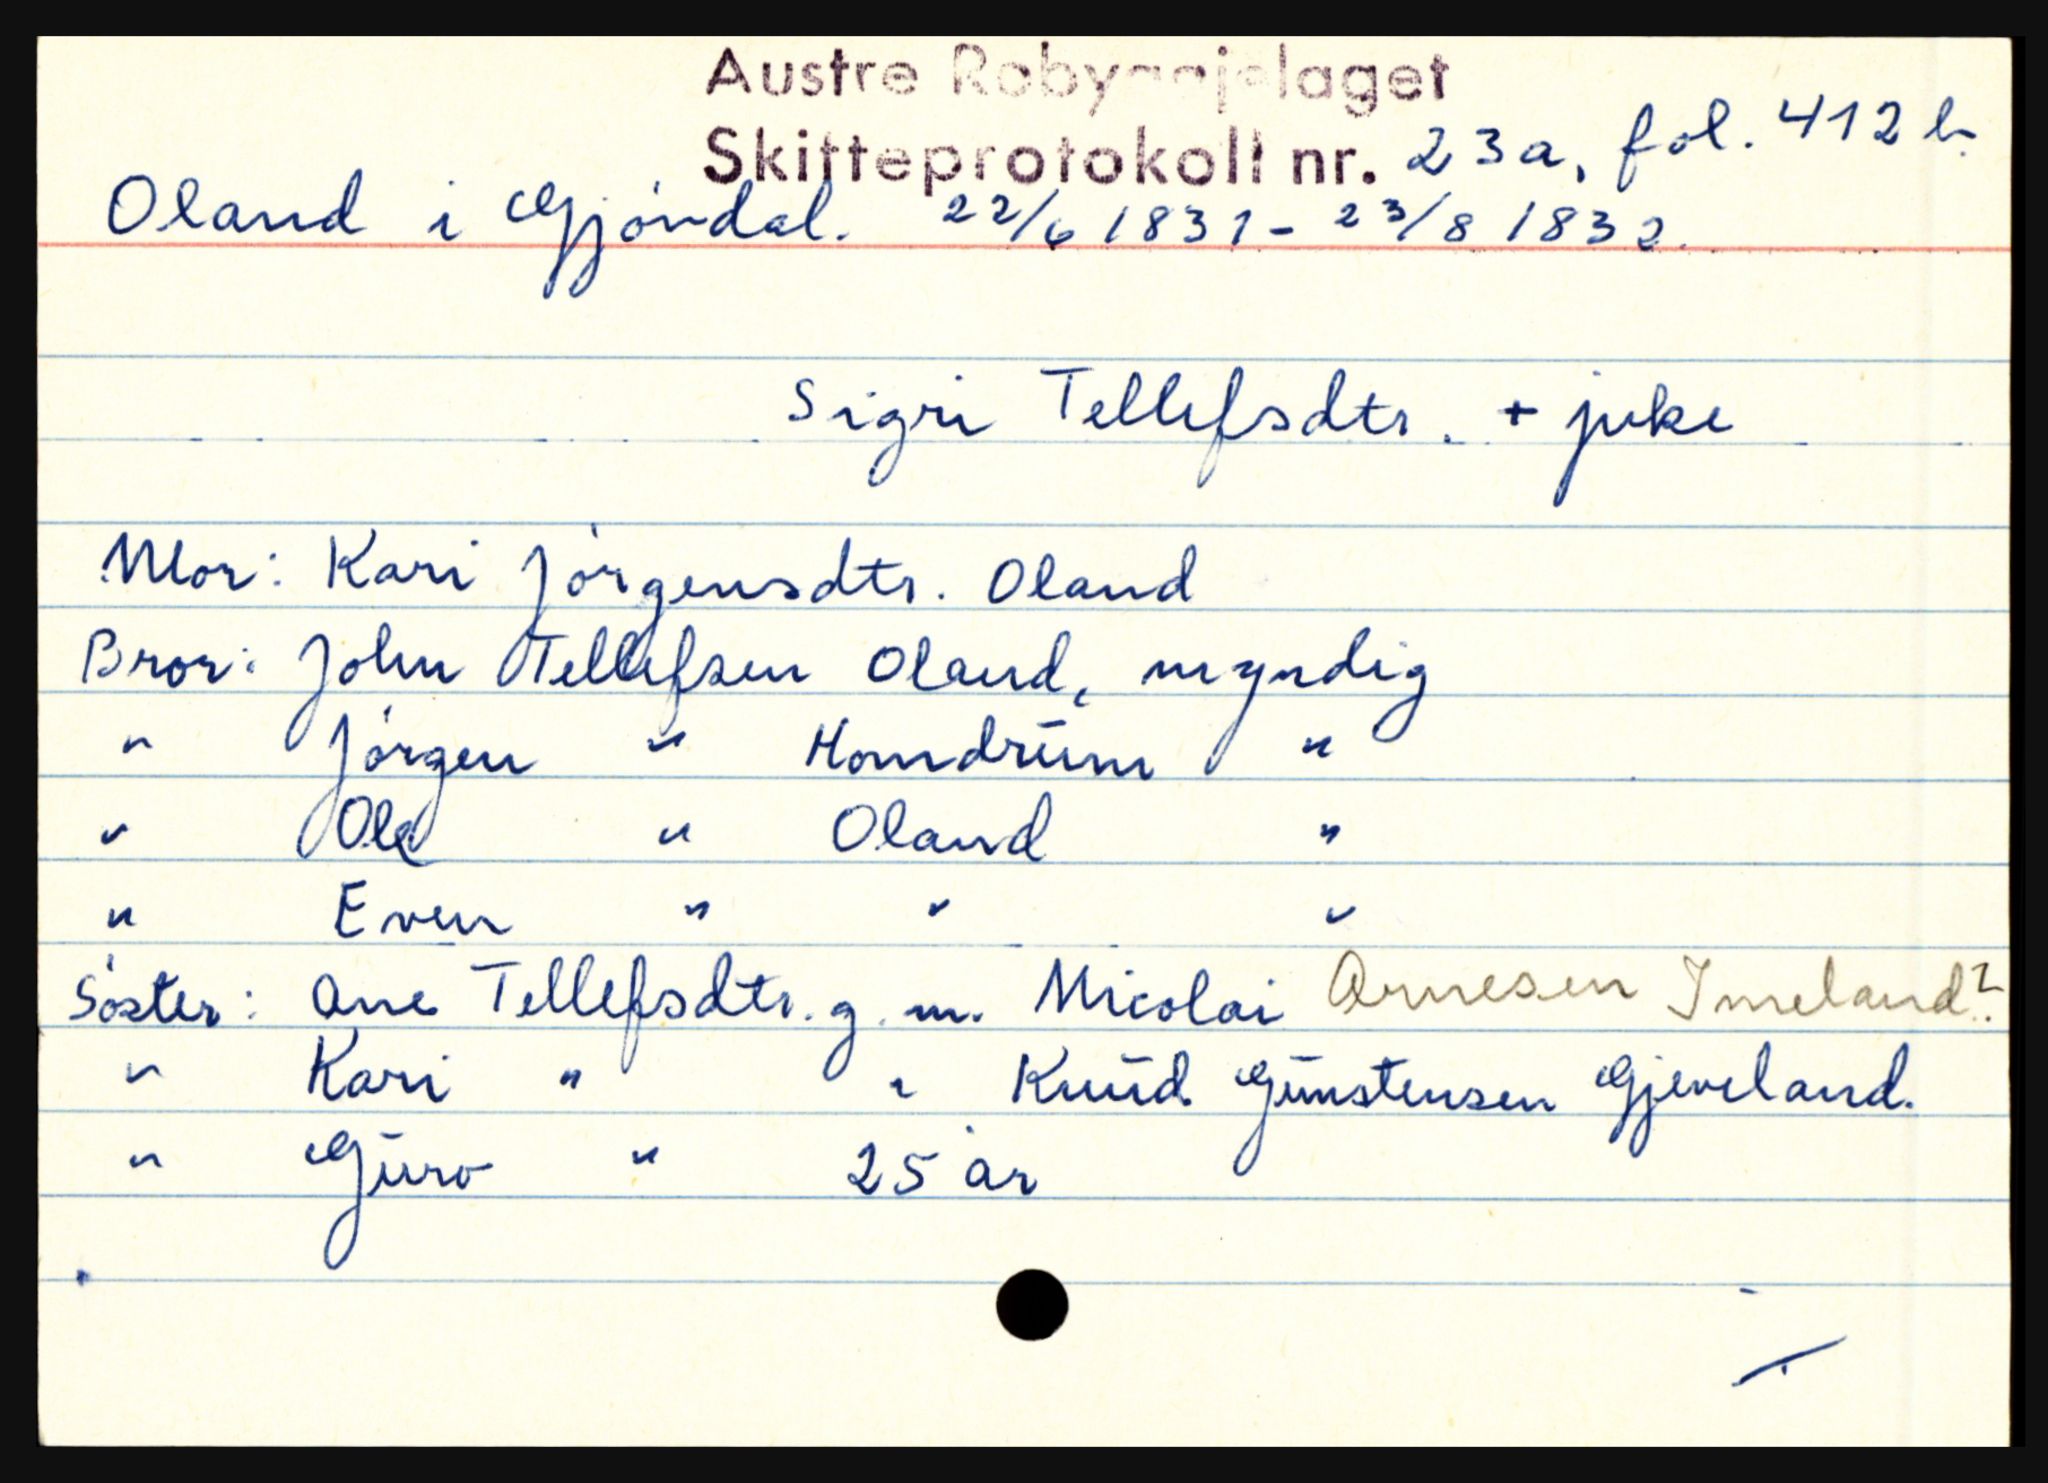 Austre Robyggjelaget
Skifteprotokoll nr. 23a, fol. 412 b.
Oland i Gjövdal. 22/6 1831 - 23/8 1832.
Sigri Tellefsdtr. + jpike
Mor: Kari Jörgensdtr. Oland
Bror: John Tellefsen Oland, myndig
" Jörgen " Homdrum "
" Ole " Oland "
" Even " " "
Söster: Ane Tellefsdtr. g. m. Nicolai Arnesen Imeland?
" Kari " " Knud Gunstensen Gjeveland.
" Guro " 25 år